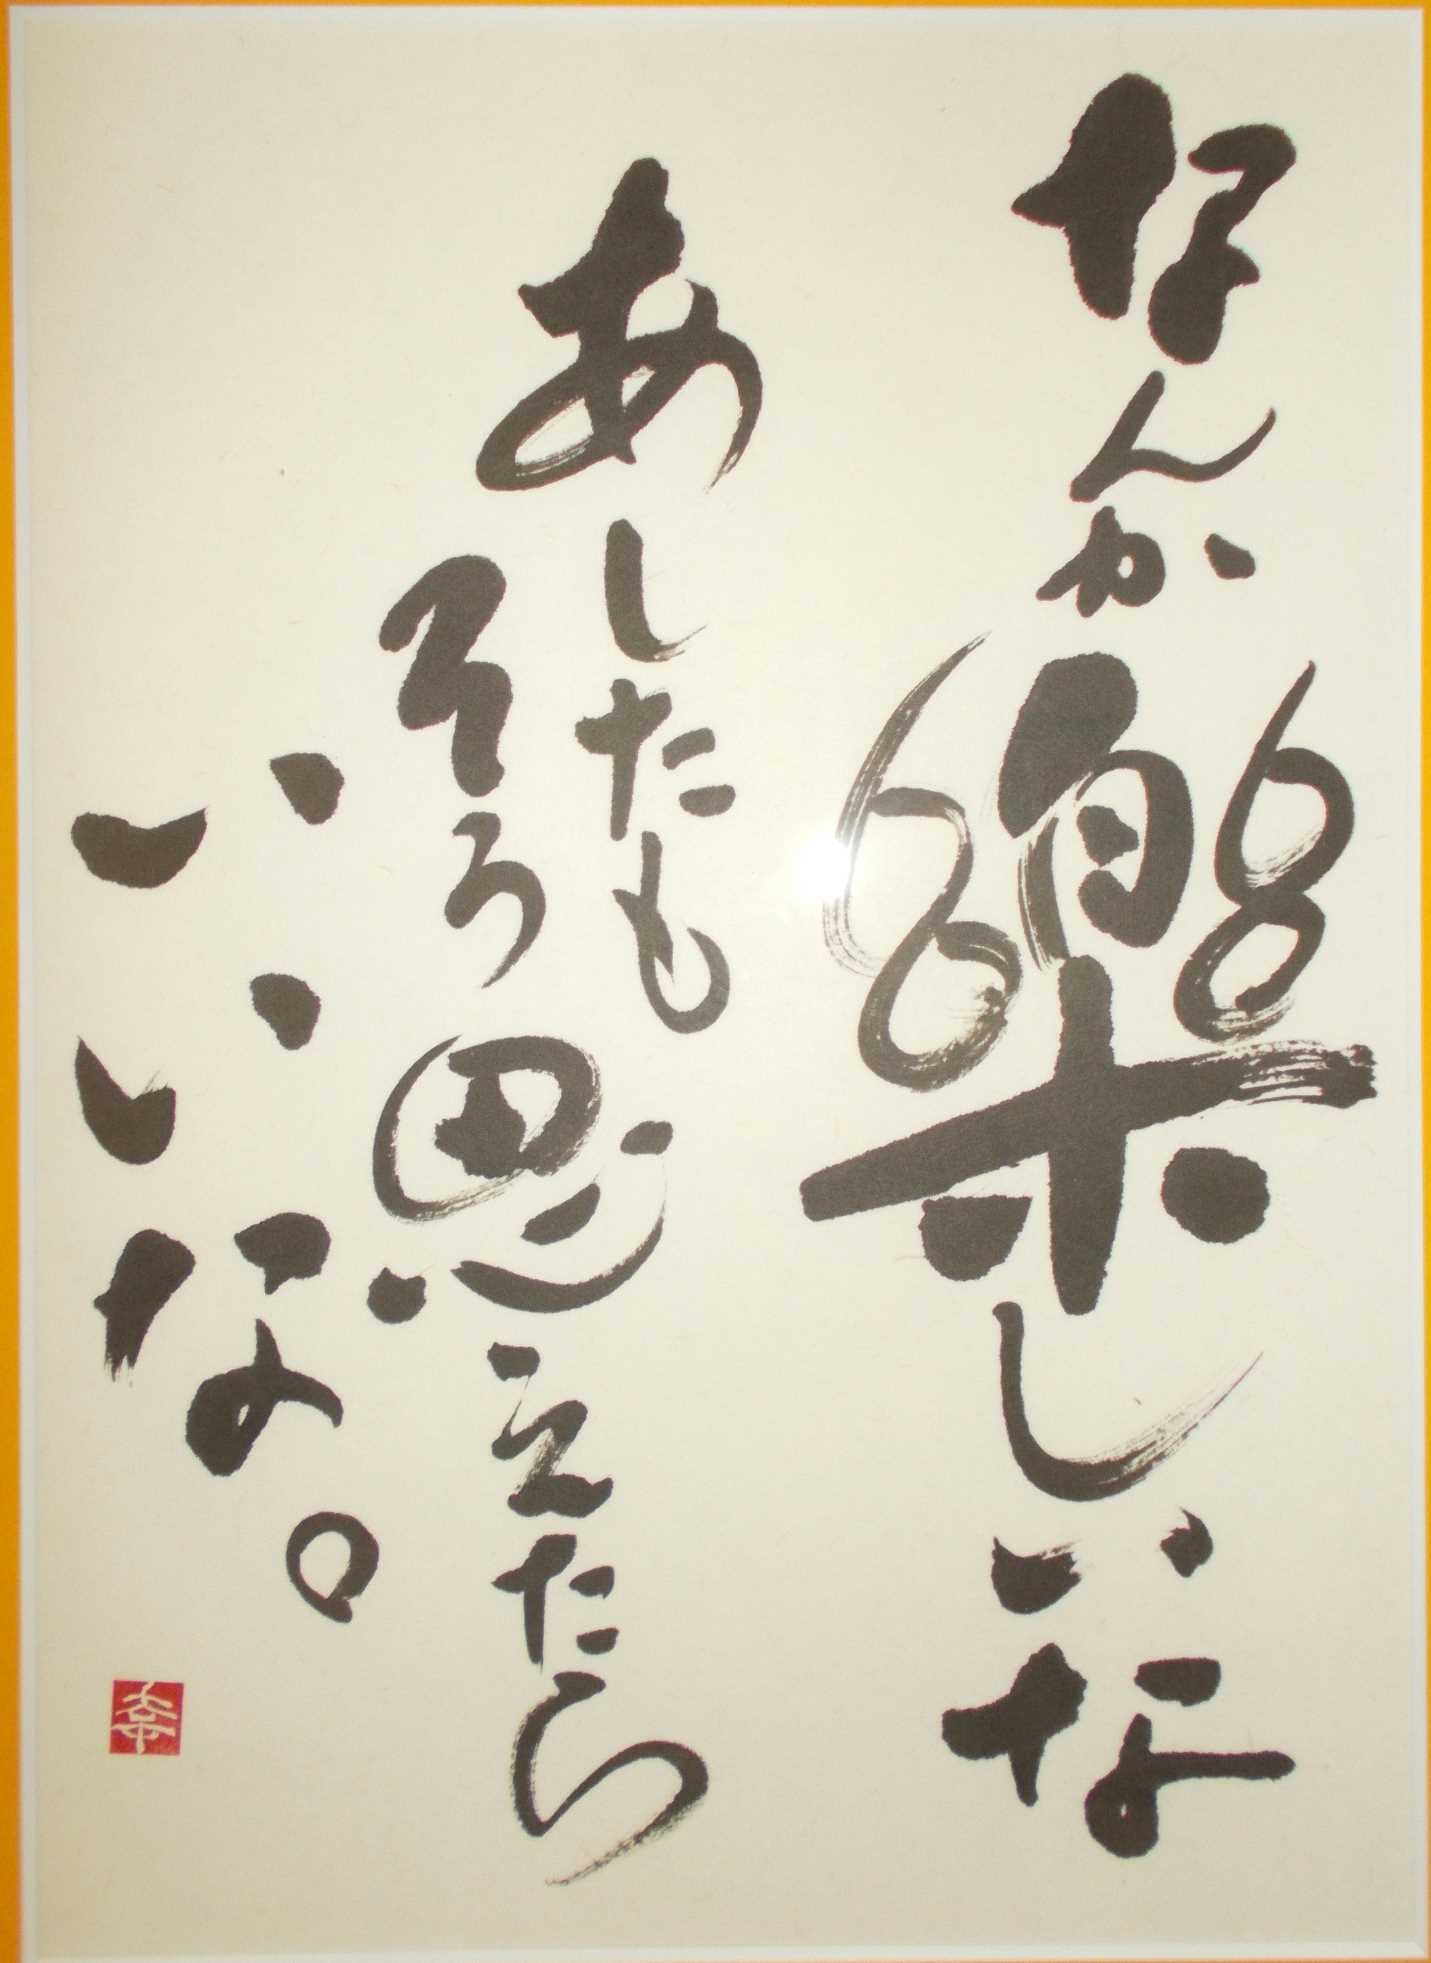 なんか樂しいな
あしたも
そう思えたら
いいな。
幸